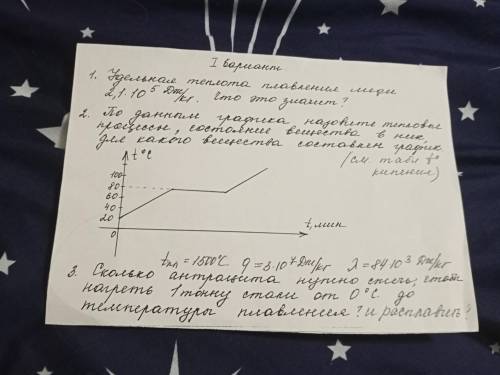 I Вариант
1. Удельная теплота плавления меди
2,1·10⁵ Дж/кг. Что это значит?
2. По данным графика, назовите тепловые
процессы, состояние вещества в них,
для какого вещества составлен график
(см. табл t°
кипения)
t°C
100
80
60
40
20
0
t, мин
tпл = 1500°C q = 3·10⁷ Дж/кг λ = 84·10³ Дж/кг
3. Сколько антрацита нужно сжечь, чтоб
нагреть 1 тонну стали от 0°C до
температуры плавления? и расплавить?